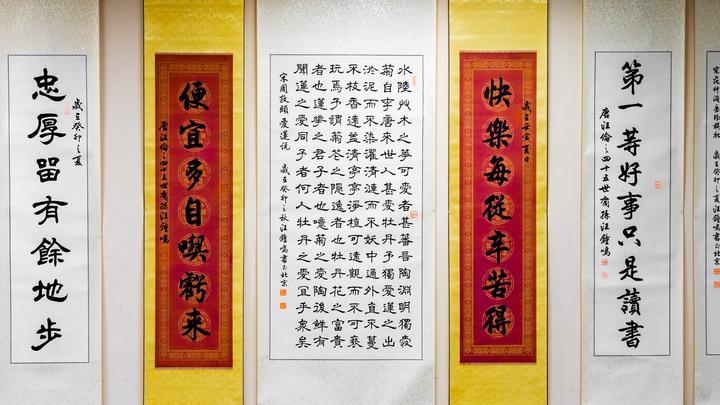 第一等好事只是讀書
唐汪倫之四十五世裔孫汪鐘鳴
歲在壬寅夏日
快樂每從辛苦得
水陸艸木之華可愛者甚蕃晉陶淵明獨愛
菊自李唐來世人甚愛牡丹予獨愛蓮之出
淤泥而不染濯清漣而不妖中通外直不蔓
不枝香遠益清亭亭淨植可遠觀而不可褻
玩焉予謂菊花之隱逸者也牡丹花之富貴
者也蓮華之君子者也噫菊之愛陶後鮮有
聞蓮之愛同予者何人牡丹之愛宜乎衆矣
宋周敦頤愛蓮說 歲在癸卯之秋汪鐘鳴書於北京
便宜多自喫虧來
唐汪倫之四十五世裔孫汪鐘鳴
歲在癸卯之夏
忠厚畱有餘地步